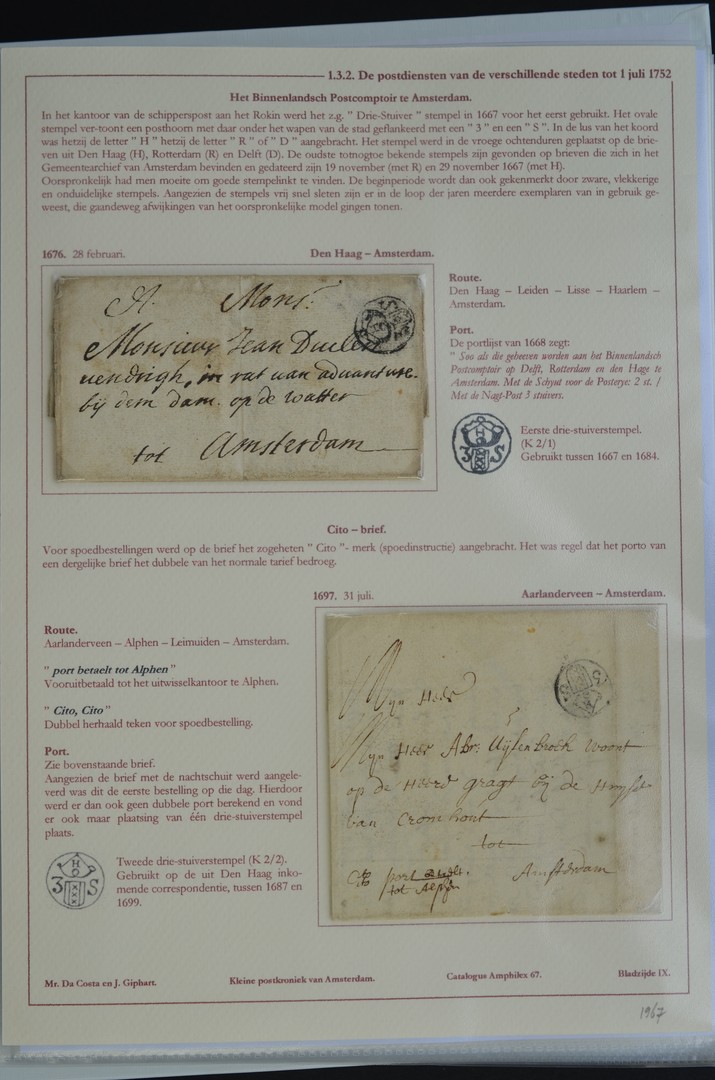 1.3.2. De postdiensten van de verschillende steden tot 1 juli 1752
Het Binnenlandsch Postcomptoir te Amsterdam.
In het kantoor van de schipperspost aan het Rokin werd het z.g. " Drie-Stuiver " stempel in 1667 voor het eerst gebruikt. Het ovale
stempel ver-toont een posthoorn met daar onder het wapen van de stad geflankeerd met een " 3 " en een " S ". In de lus van het koord
was hetzij de letter " H " hetzij de letter " R " of " D " aangebracht. Het stempel werd in de vroege ochtenduren geplaatst op de brie-
ven uit Den Haag (H), Rotterdam (R) en Delft (D). De oudste totnogtoe bekende stempels zijn gevonden op brieven die zich in het
Gemeentearchief van Amsterdam bevinden en gedateerd zijn 19 november (met R) en 29 november 1667 (met H).
Oorspronkelijk had men moeite om goede stempelinkt te vinden. De beginperiode wordt dan ook gekenmerkt door zware, vlekkerige
en onduidelijke stempels. Aangezien de stempels vrij snel sleten zijn er in de loop der jaren meerdere exemplaren van in gebruik ge-
weest, die gaandeweg afwijkingen van het oorspronkelijke model gingen tonen.
1676. 28 februari.
Den Haag – Amsterdam.
A. Mons:
Monsieur Jean
in rat van
bij dem dam. op de watter
tot Amsterdam
Route.
Den Haag – Leiden – Lisse – Haarlem –
Amsterdam.
Port.
De portlijst van 1668 zegt:
" Soo als die geheeven worden aan het Binnenlandsch
Postcomptoir op Delft, Rotterdam en den Hage te
Amsterdam. Met de Schuyt voor de Posterye: 2 st. /
Met de Nagt-Post 3 stuivers.
H
3 S
XXX
Eerste drie-stuiverstempel.
(K 2/1)
Gebruikt tussen 1667 en 1684.
Cito – brief.
Voor spoedbestellingen werd op de brief het zogeheten " Cito "- merk (spoedinstructie) aangebracht. Het was regel dat het porto van
een dergelijke brief het dubbele van het normale tarief bedroeg.
1697. 31 juli.
Aarlanderveen – Amsterdam.
Route.
Aarlanderveen – Alphen – Leimuiden – Amsterdam.
" port betaelt tot Alphen "
Vooruitbetaald tot het uitwisselkantoor te Alphen.
" Cito, Cito "
Dubbel herhaald teken voor spoedbestelling.
Port.
Zie bovenstaande brief.
Aangezien de brief met de nachtschuit werd aangele-
verd was dit de eerste bestelling op die dag. Hierdoor
werd er dan ook geen dubbele port berekend en vond
er ook maar plaatsing van één drie-stuiverstempel
plaats.
H
3 S
XXX
Tweede drie-stuiverstempel (K 2/2).
Gebruikt op de uit Den Haag inko-
mende correspondentie, tussen 1687 en
1699.
Mijn Heer
Mijn Heer Abr: Uijlenbroek woont
op de Heere gragt bij de
van Cromhout
tot
Amsterdam
Cito port
tot Alphen
Mr. Da Costa en J. Giphart.
Kleine postkroniek van Amsterdam.
Catalogus Amphilex 67.
Bladzijde IX.
1967